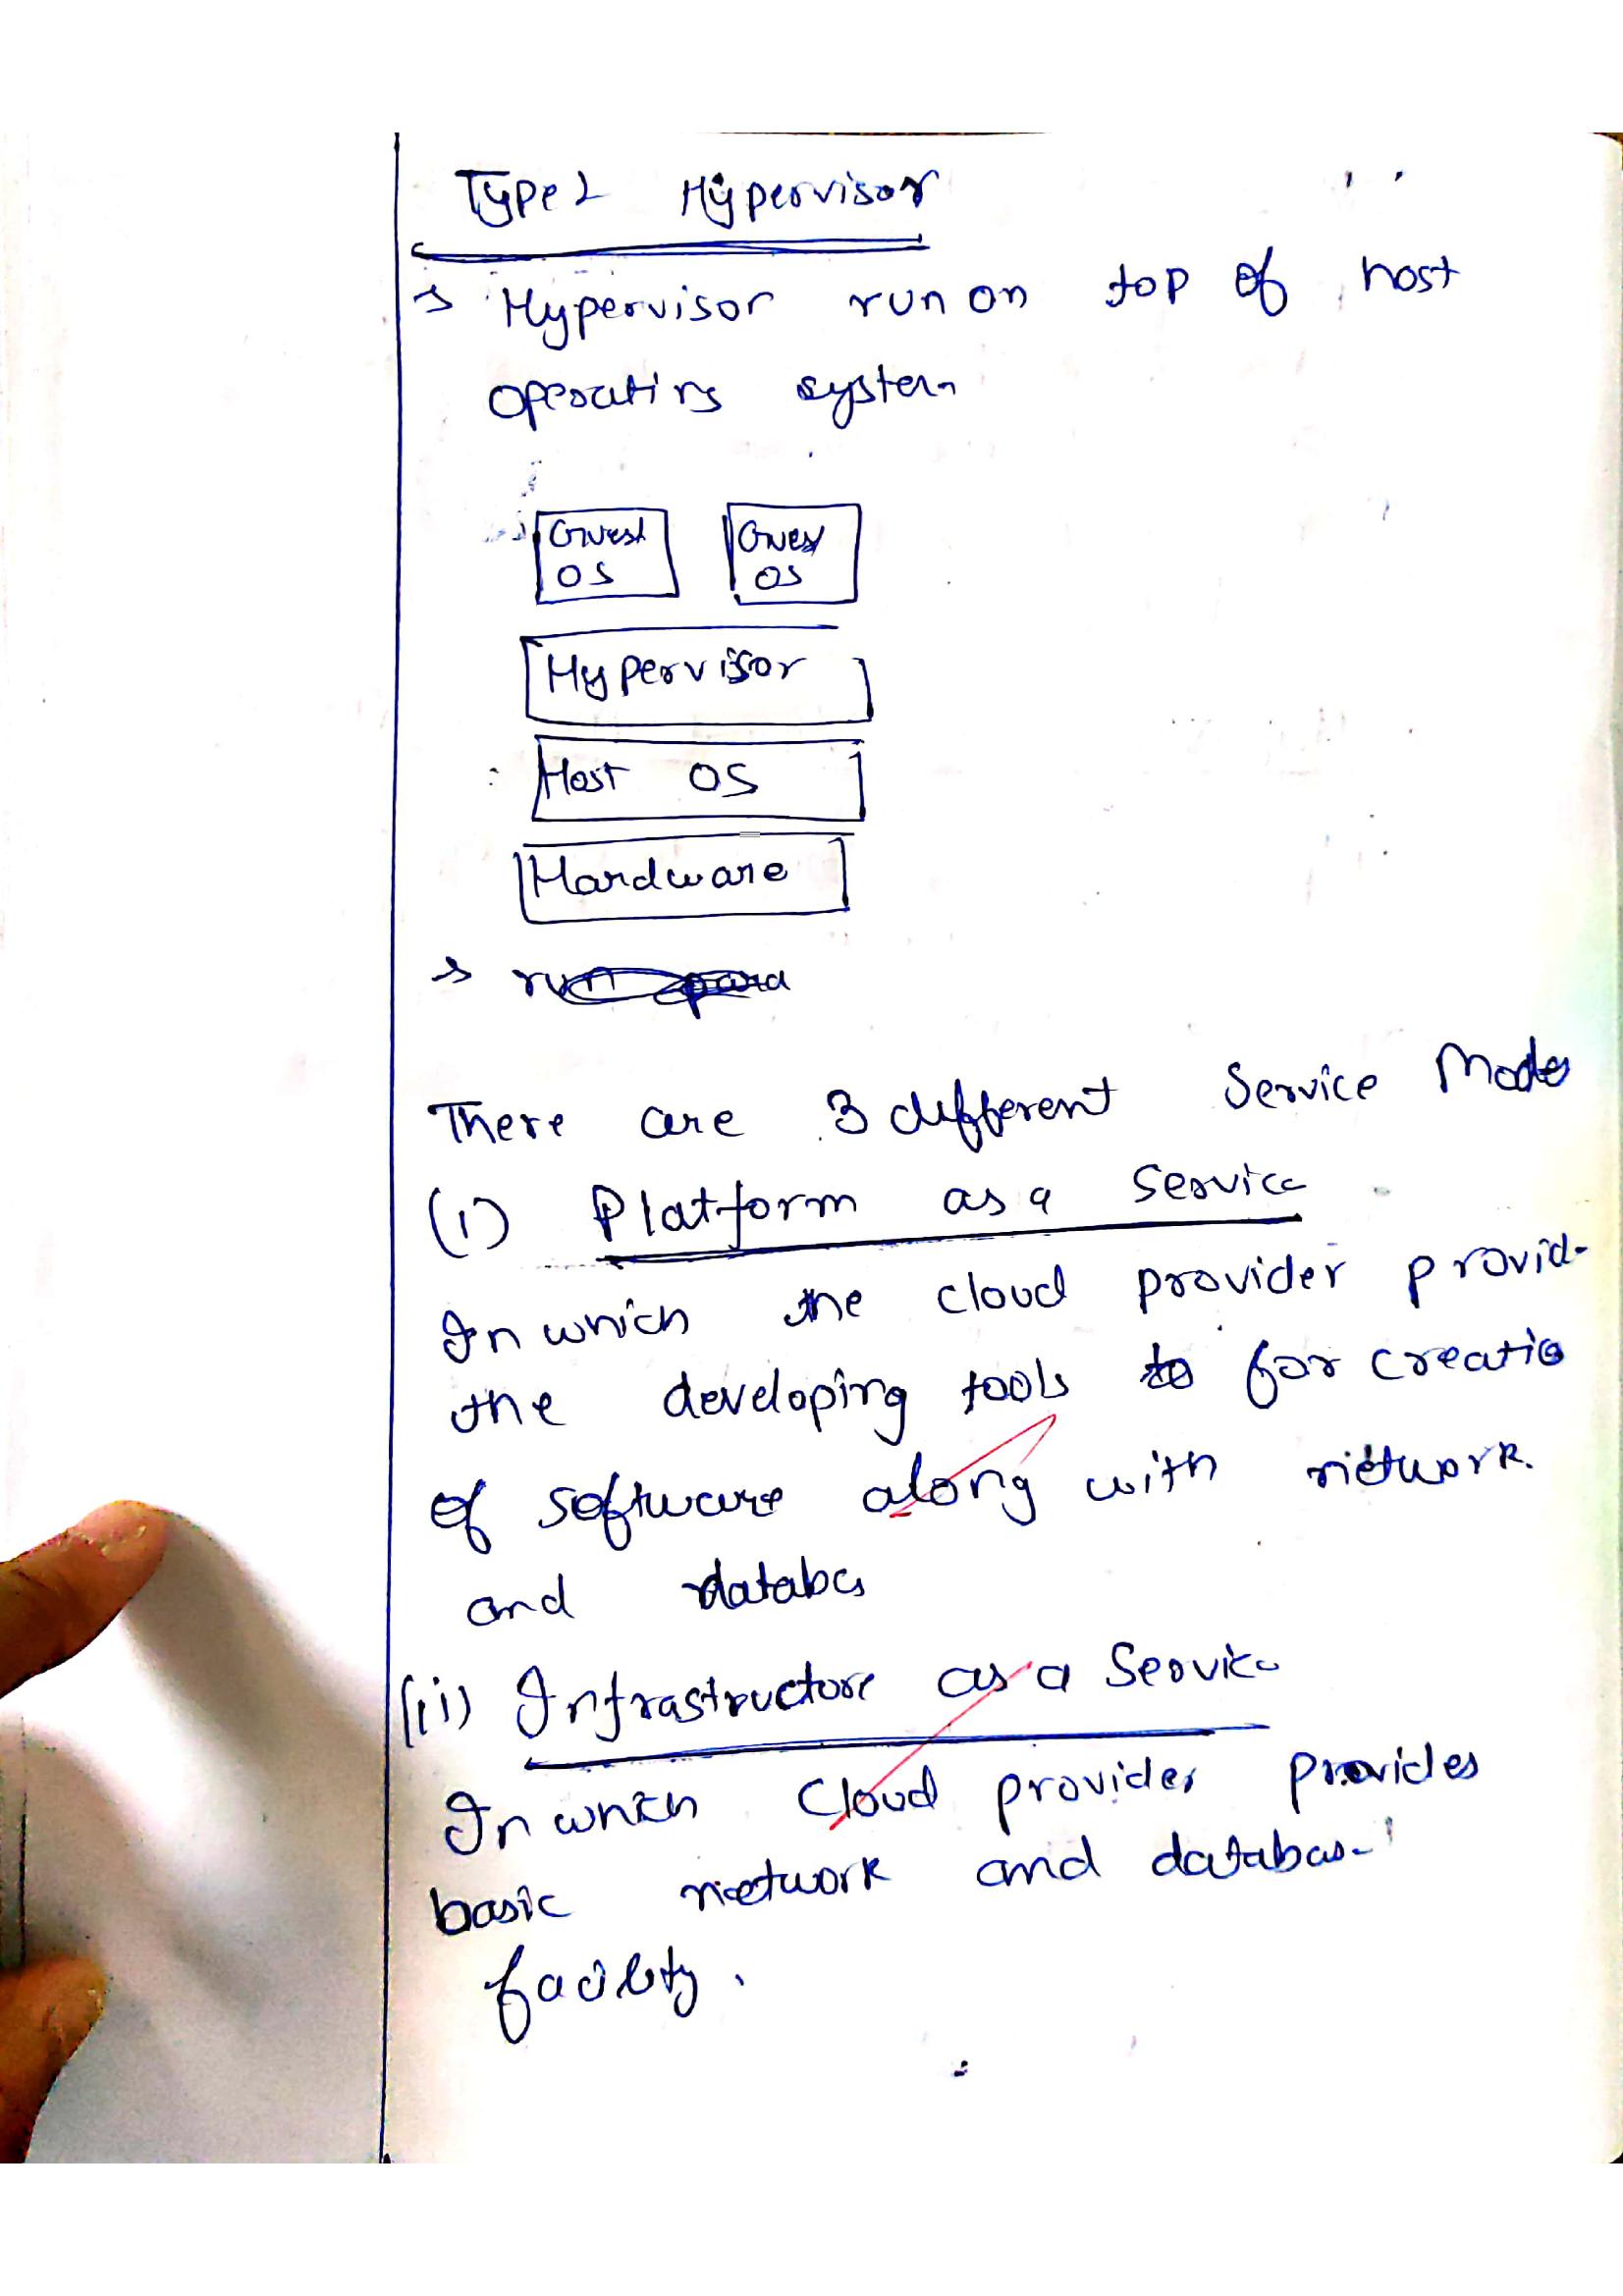 Type 2 Hypervisor
→ Hypervisor run on top of host
operating system
Guest OS Guest OS
Hypervisor
Host OS
Hardware
→ run para
There are 3 different Service Mode
(i) Platform as a Service
In which the cloud provider provid-
the developing tools to for creatio
of software along with network.
and databas
(ii) Infrastructure as a Service
In which Cloud provider provides
basic network and databas-
facility.